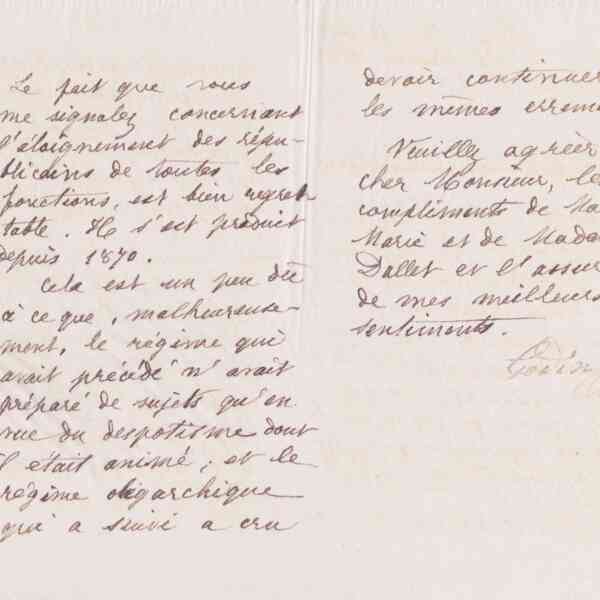 Le fait que vous
me signalez concernant
l'éloignement des répu-
blicains de toutes les
fonctions, est bien regret-
table. Il s'est produit
depuis 1870.
Cela est un peu dû
à ce que, malheureuse-
ment, le régime qui
avait précédé n'avait
préparé de sujets qu'en
vue du despotisme dont
il était animé; et le
régime oligarchique
qui a suivi a cru
devoir continuer
les mêmes errem
Veuillez agréer
cher Monsieur, les
compliments de Ma
Marie et de Mada
Dallet et l'assur
de mes meilleurs
sentiments.
Godin